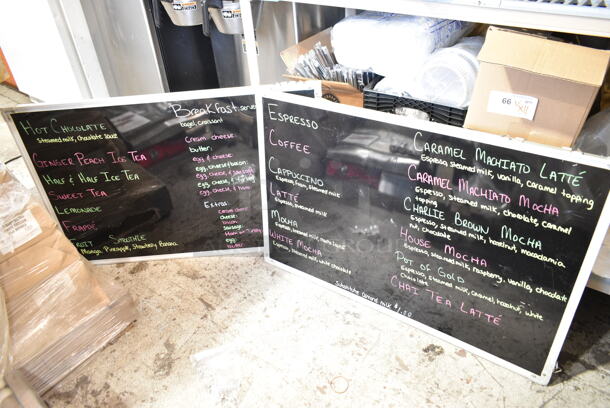 HOT CHOCOLATE
Steamed milk, chocolate sauce
GINGER PEACH ICE TEA
HALF & HALF ICE TEA
SWEET TEA
LEMONADE
FRAPPE
FRUIT SMOOTHIE
Mango, Pineapple, Strawberry Banana
BREAKFAST:
bagel, croissant
Cream cheese
butter:
egg & cheese
egg, cheese, bacon:
egg, cheese & ham:
Extras
cream cheese
cheese:
bacon:
Sausage
Ham or Turkey
egg:
ESPRESSO
COFFEE
CAPPUCCINO
Espresso, foam, steamed milk
LATTÉ
Espresso, steamed milk
MOCHA
WHITE MOCHA
Espresso, steamed milk, white chocolate
Substitute almond milk $1.00
CARAMEL MACHIATO LATTÉ
Espresso, steamed milk, vanilla, caramel topping
CARAMEL MACHIATO MOCHA
Espresso, steamed milk, chocolate, caramel
topping
CHARLIE BROWN MOCHA
Espresso, steamed milk, hazelnut, macadamia
nut, chocolate
HOUSE MOCHA
Espresso, steamed milk, raspberry, vanilla, chocolate
POT OF GOLD
Espresso, steamed milk, caramel, hazelnut, white
chocolate
CHAI TEA LATTÉ
66